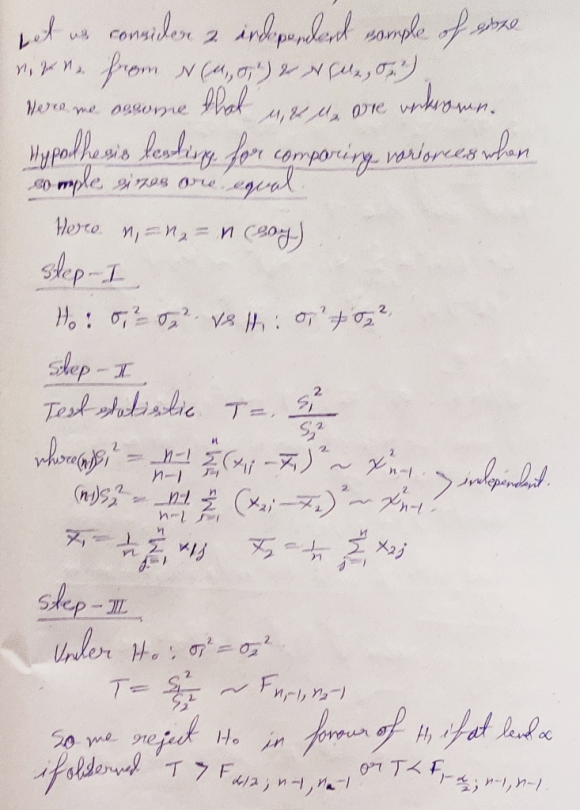 Let us consider 2 independent sample of size
n₁ & n₂ from N(μ₁,σ₁²) & N(μ₂,σ₂²)
Here we assume that μ₁ & μ₂ are unknown.
Hypothesis testing for comparing variances when
sample sizes are equal.
Here n₁ = n₂ = n (say)
Step-I
H₀ : σ₁² = σ₂² vs H₁ : σ₁² ≠ σ₂².
Step-II
Test statistic T = S₁²/S₂²
where (n-1)S₁² = (n-1)/(n-1) Σⁿⱼ₌₁ (x₁ⱼ - x̄₁)² ~ χ²ₙ₋₁.
(n-1)S₂² = (n-1)/(n-1) Σⁿⱼ₌₁ (x₂ⱼ - x̄₂)² ~ χ²ₙ₋₁. > independent.
x̄₁ = 1/n Σⁿⱼ₌₁ x₁ⱼ x̄₂ = 1/n Σⁿⱼ₌₁ x₂ⱼ
Step-III
Under H₀ : σ₁² = σ₂²
T = S₁²/S₂² ~ F n₁-1, n₂-1
So we reject H₀ in favour of H₁ if at level α
if observed T > F α/2; n-1, n-1 or T < F 1-α/2; n-1, n-1.